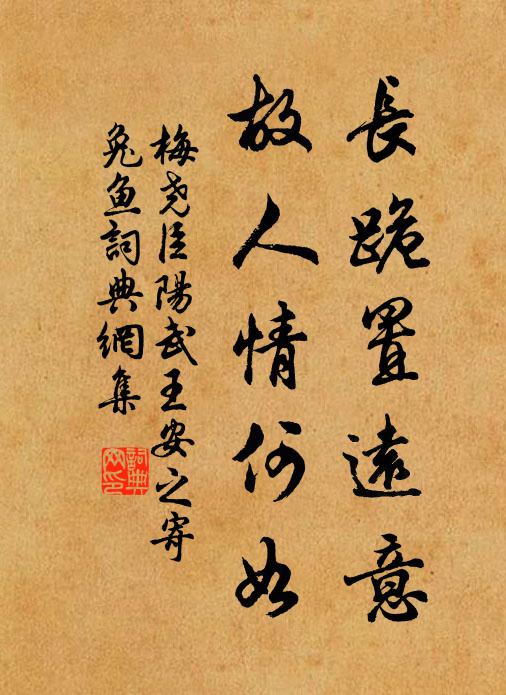 長跪置遠意
故人情何如
梅堯臣陽武王安之寄
兔魚詞典網集
詞典
网印